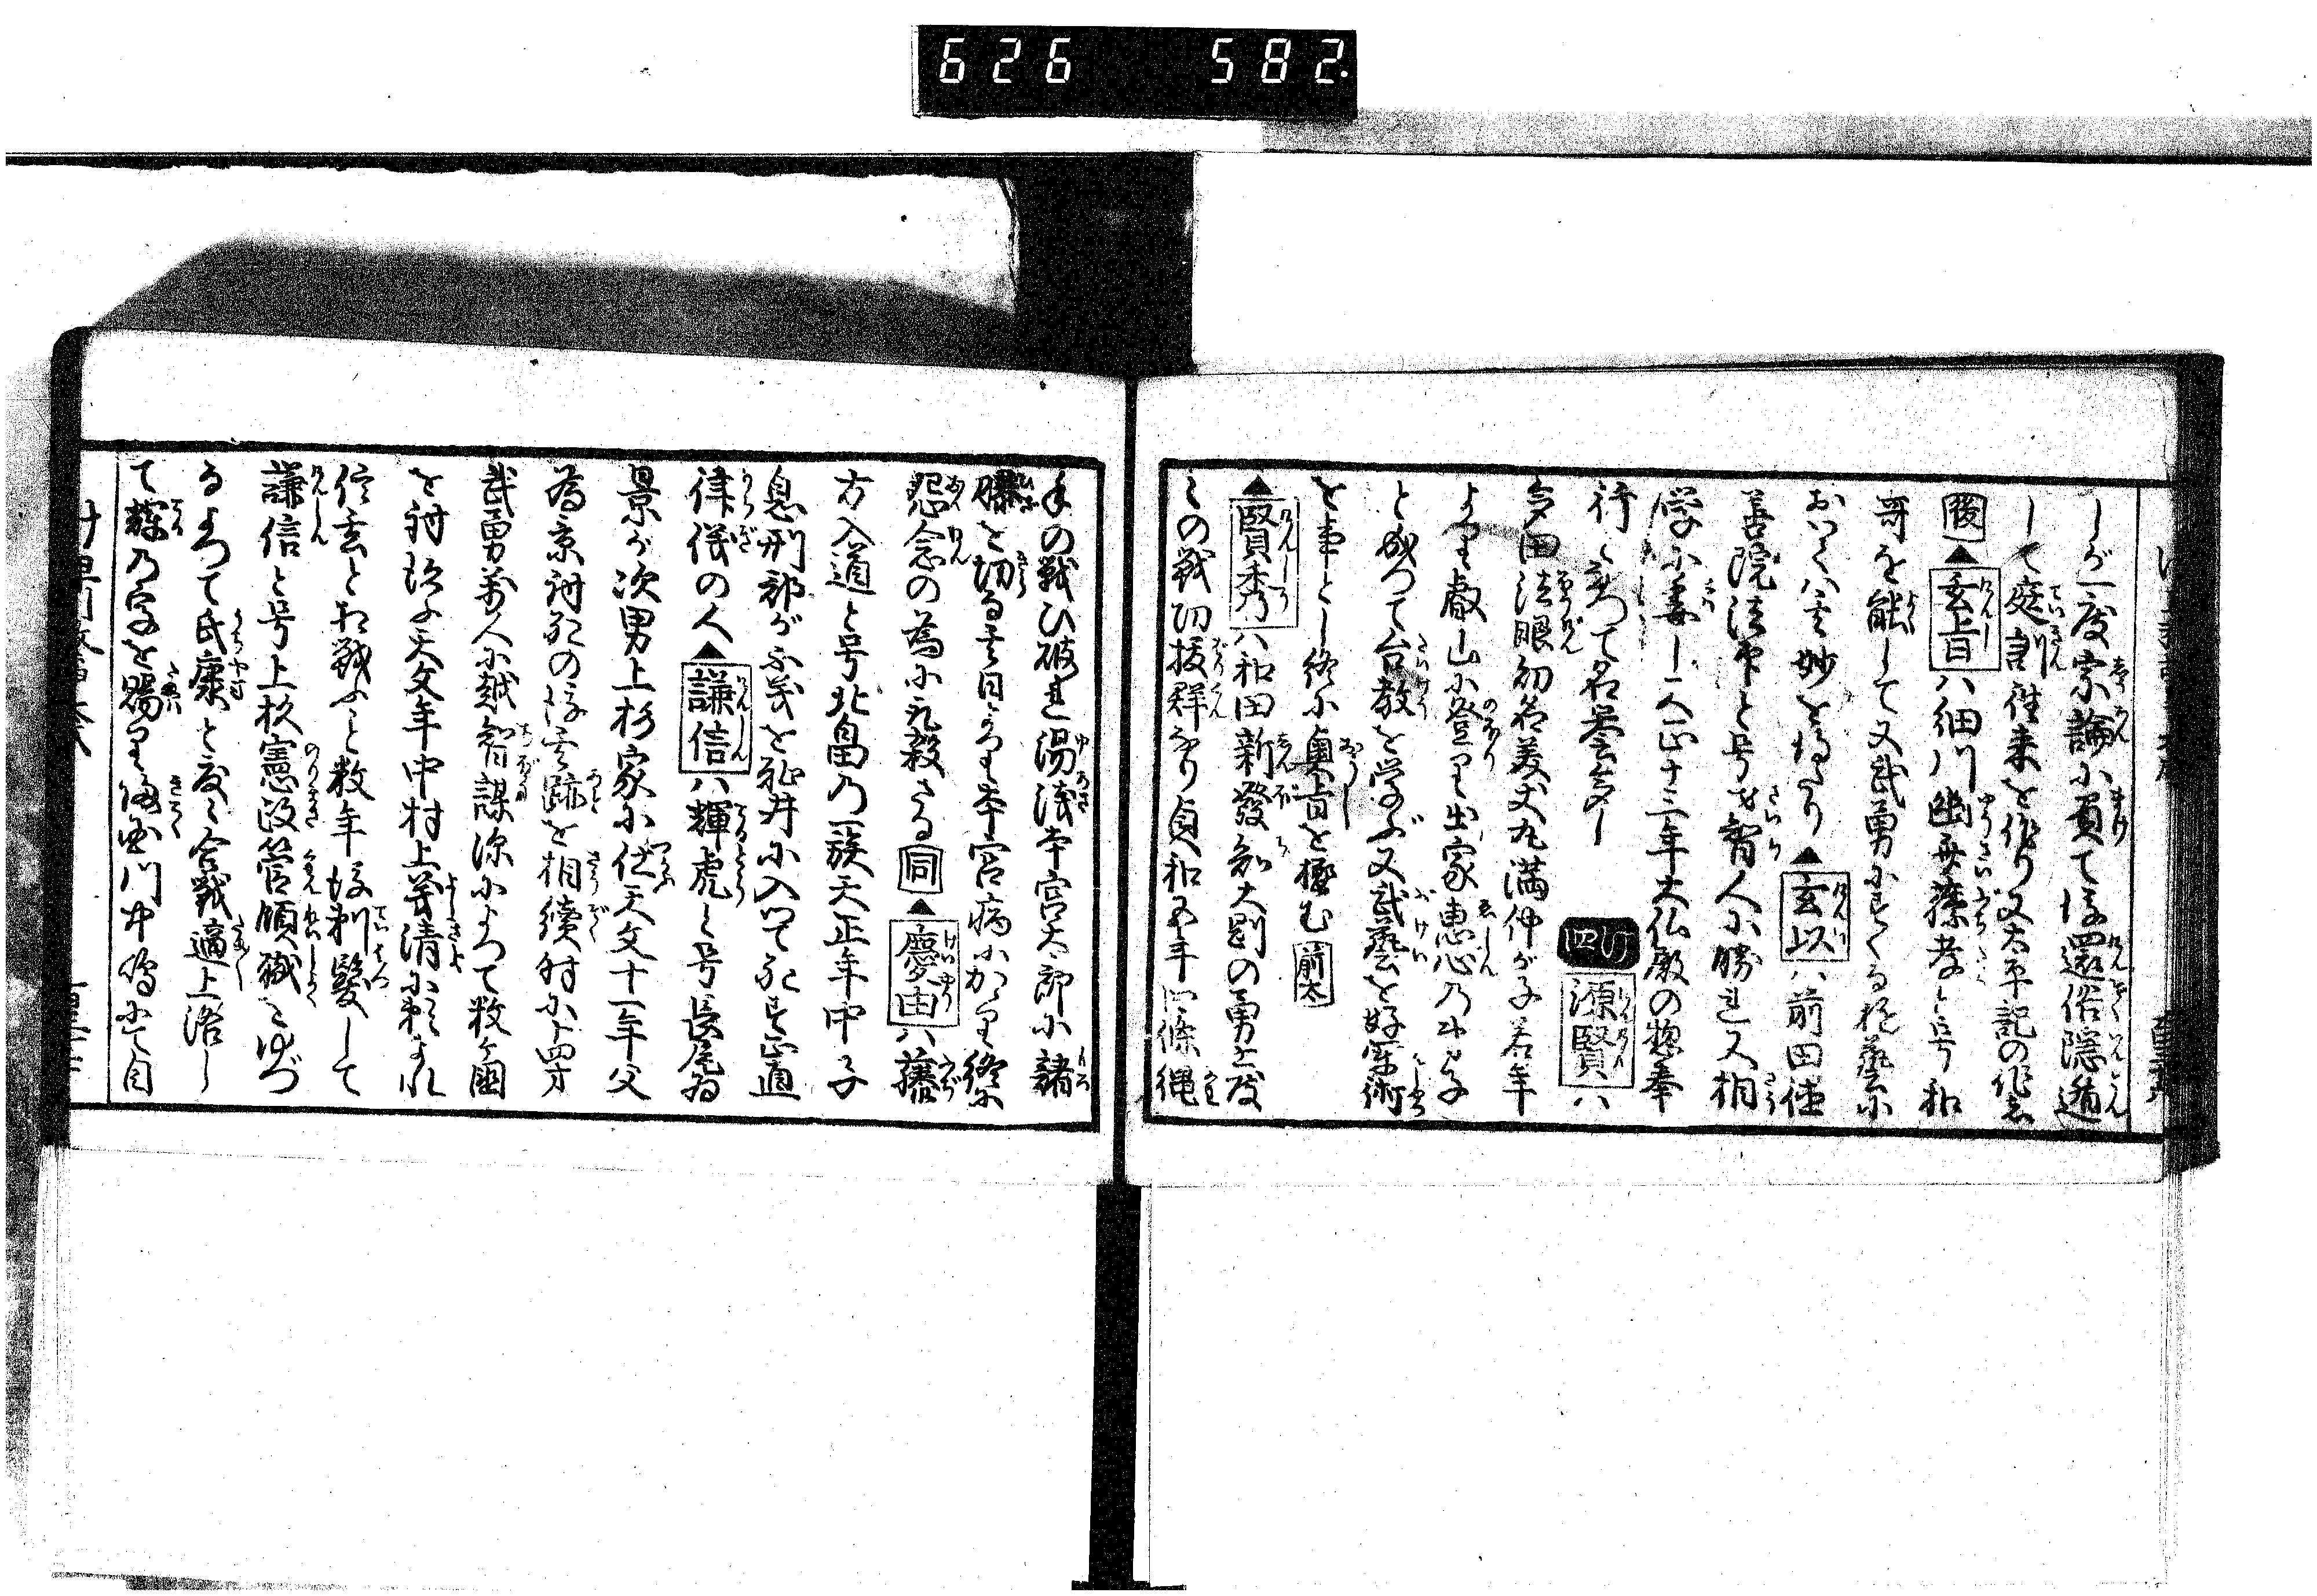 626 582.
しが一度宗論に負て後還俗隠遁
して庭訓往来を作り又太平記の作者
後▲玄旨ハ細川幽斎藤孝と号和
哥を能して又武勇にすぐる
おいてハ妙を得たり▲玄以ハ前田徳
善院法印と号智人に勝れ又相
学に妻し天正十三年大仏殿の惣奉
行と成つて名誉多し
四行 源賢ハ
多田法眼初名美丈丸満仲が子若年
より叡山に登り出家恵心の弟子
と成つて台教を学び又武藝を好軍術
を事とし終に奥旨を極む 前太
▲賢秀ハ和田新發知大剛の勇士度
〻の戦功抜群なり貞和五年四條縄
手の戦ひ破れ湯浅本宮太郎に諸
膝を切る其日より本宮病に加り終に
怨念の為に乱殺さる 同▲慶由ハ藤
方入道と号北畠乃一族天正年中子
息刑部が不義を恥井に入つて死す正直
律儀の人▲謙信ハ輝虎と号長尾為
景が次男上杉家に仕天文十一年父
為景討死の後其跡を相續時に十四才
武勇萬人に越智謀深によつて数ヶ国
を討治よ天文年中村上義清に頼れ
信玄と相戦ふと数年後剃髪して
謙信と号上杉憲政管領職をゆづ
るよつて氏康と度々合戦適上洛し
て輝乃字を賜り帰国川中嶋にて自